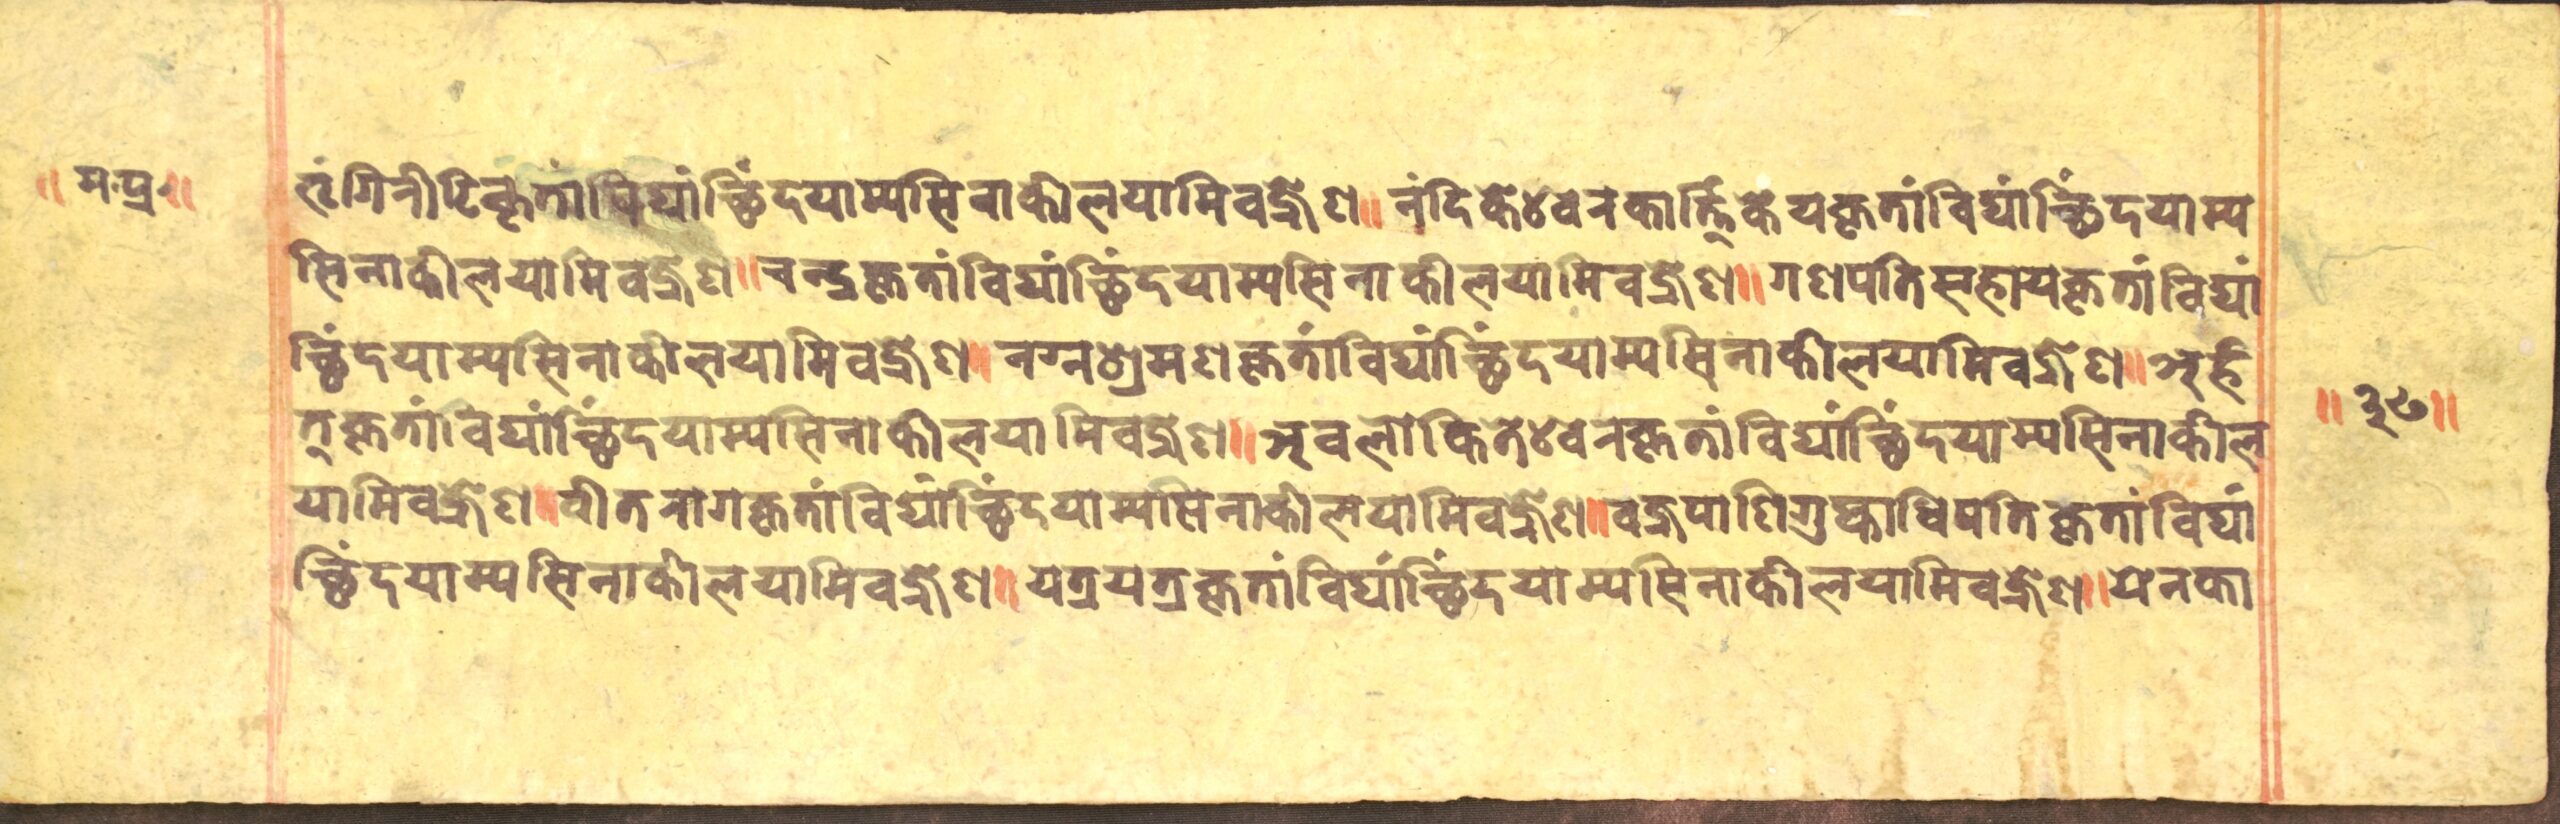 ॥ म॰प्र॰॥
भृंगिरीटिकृतांविद्यांच्छिंदयाम्यसिनाकीलयामिवज्रेण॥ नंदिकेश्वरकार्त्तिकेयकृतांविद्यांच्छिंदयाम्य
सिनाकीलयामिवज्रेण॥चन्द्रकृतांविद्यांच्छिंदयाम्यसिनाकीलयामिवज्रेण॥गणपतिसहायकृतांविद्यां
च्छिंदयाम्यसिनाकीलयामिवज्रेण॥ नग्नश्रमणकृतांविद्यांच्छिंदयाम्यसिनाकीलयामिवज्रेण॥अर्ह
त्कृतांविद्यांच्छिंदयाम्यसिनाकीलयामिवज्रेण॥अवलोकितेश्वरकृतांविद्यांच्छिंदयाम्यसिनाकील
यामिवज्रेण॥वीतरागकृतांविद्यांच्छिंदयाम्यसिनाकीलयामिवज्रेण॥वज्रपाणिगुह्यकाधिपतिकृतांविद्यां
च्छिंदयाम्यसिनाकीलयामिवज्रेण॥ यत्रयत्रकृतांविद्यांच्छिंदयाम्यसिनाकीलयामिवज्रेण॥येनका